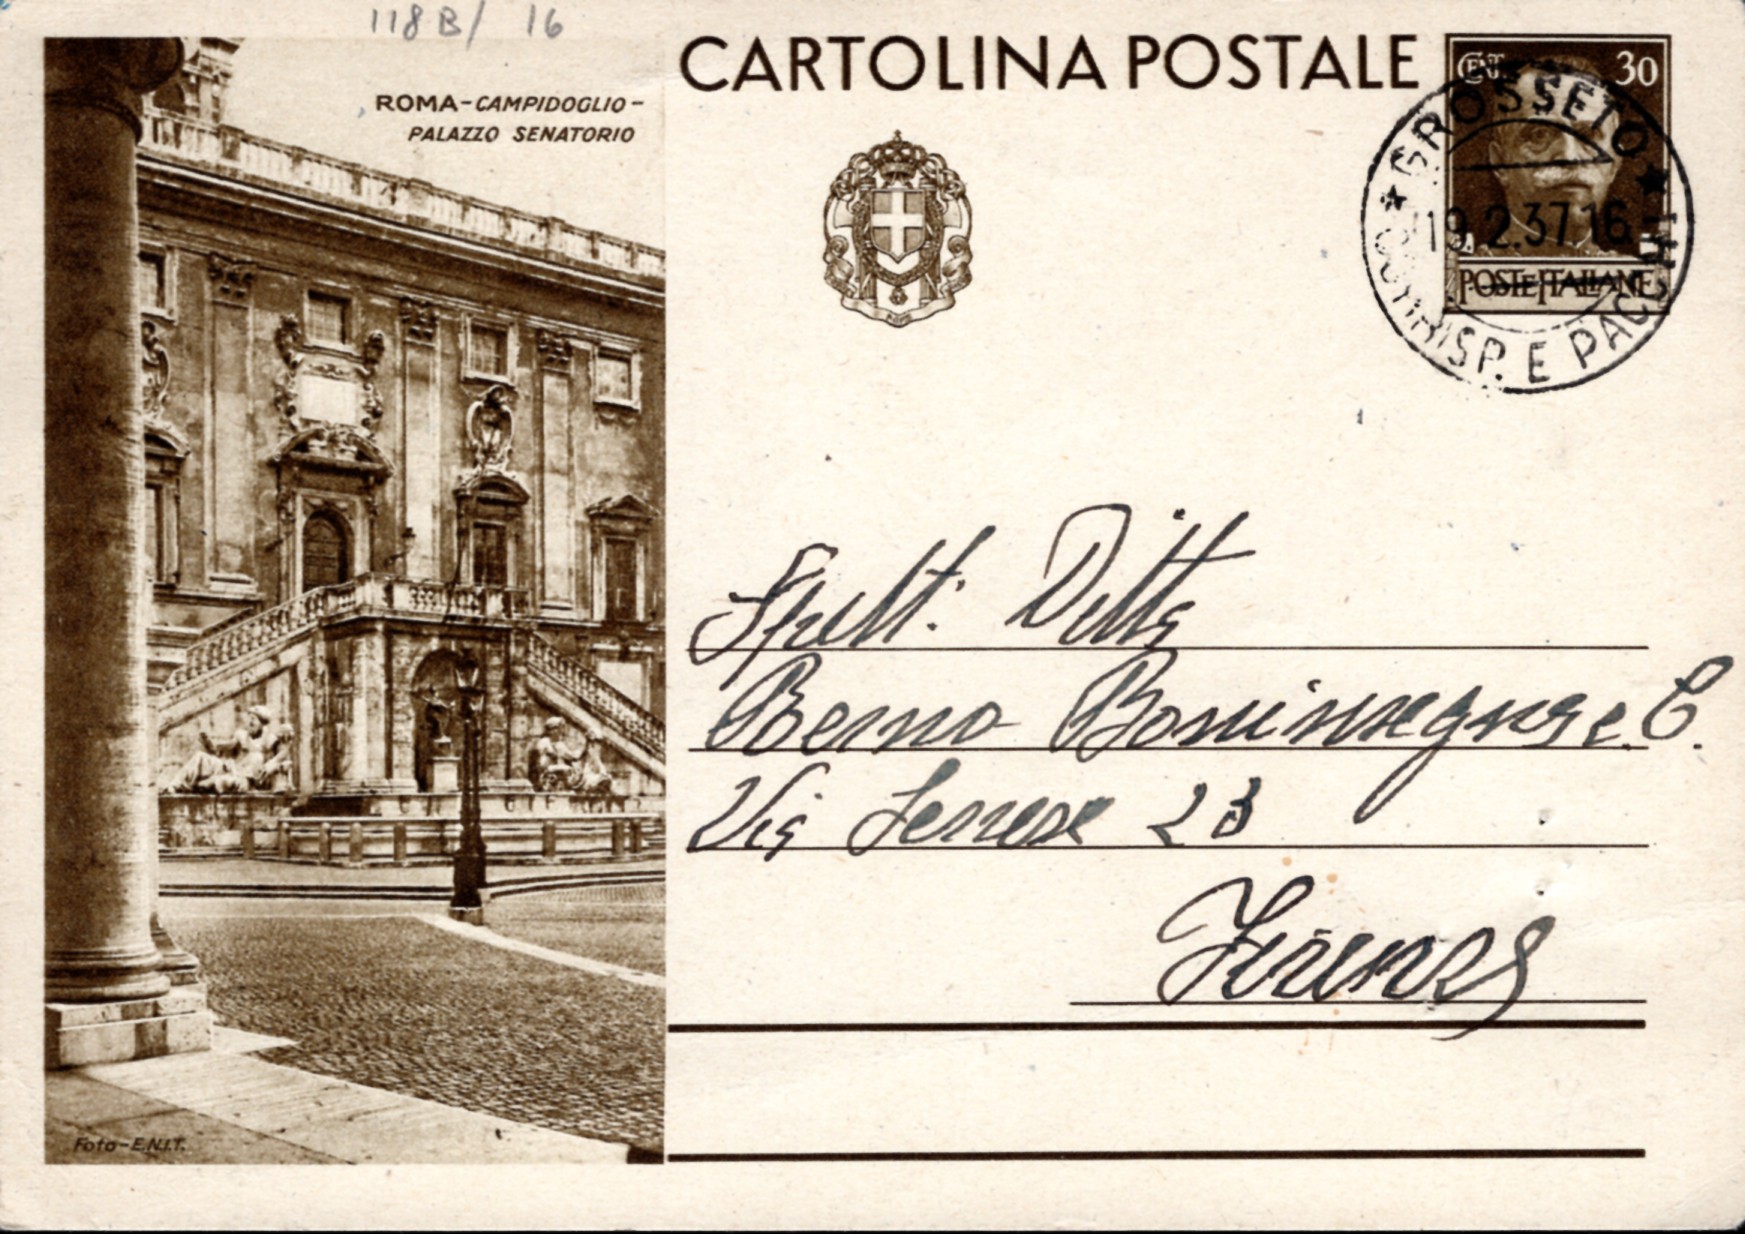 118 B/ 16
ROMA-CAMPIDOGLIO-
PALAZZO SENATORIO
CARTOLINA POSTALE
CENT 30
POSTE ITALIANE
★ GROSSETO ★
19.2.37.16
CORRISP. E PACCHI
Spett. Ditta
Via Senese 23
Firenze
Foto-E.N.I.T.